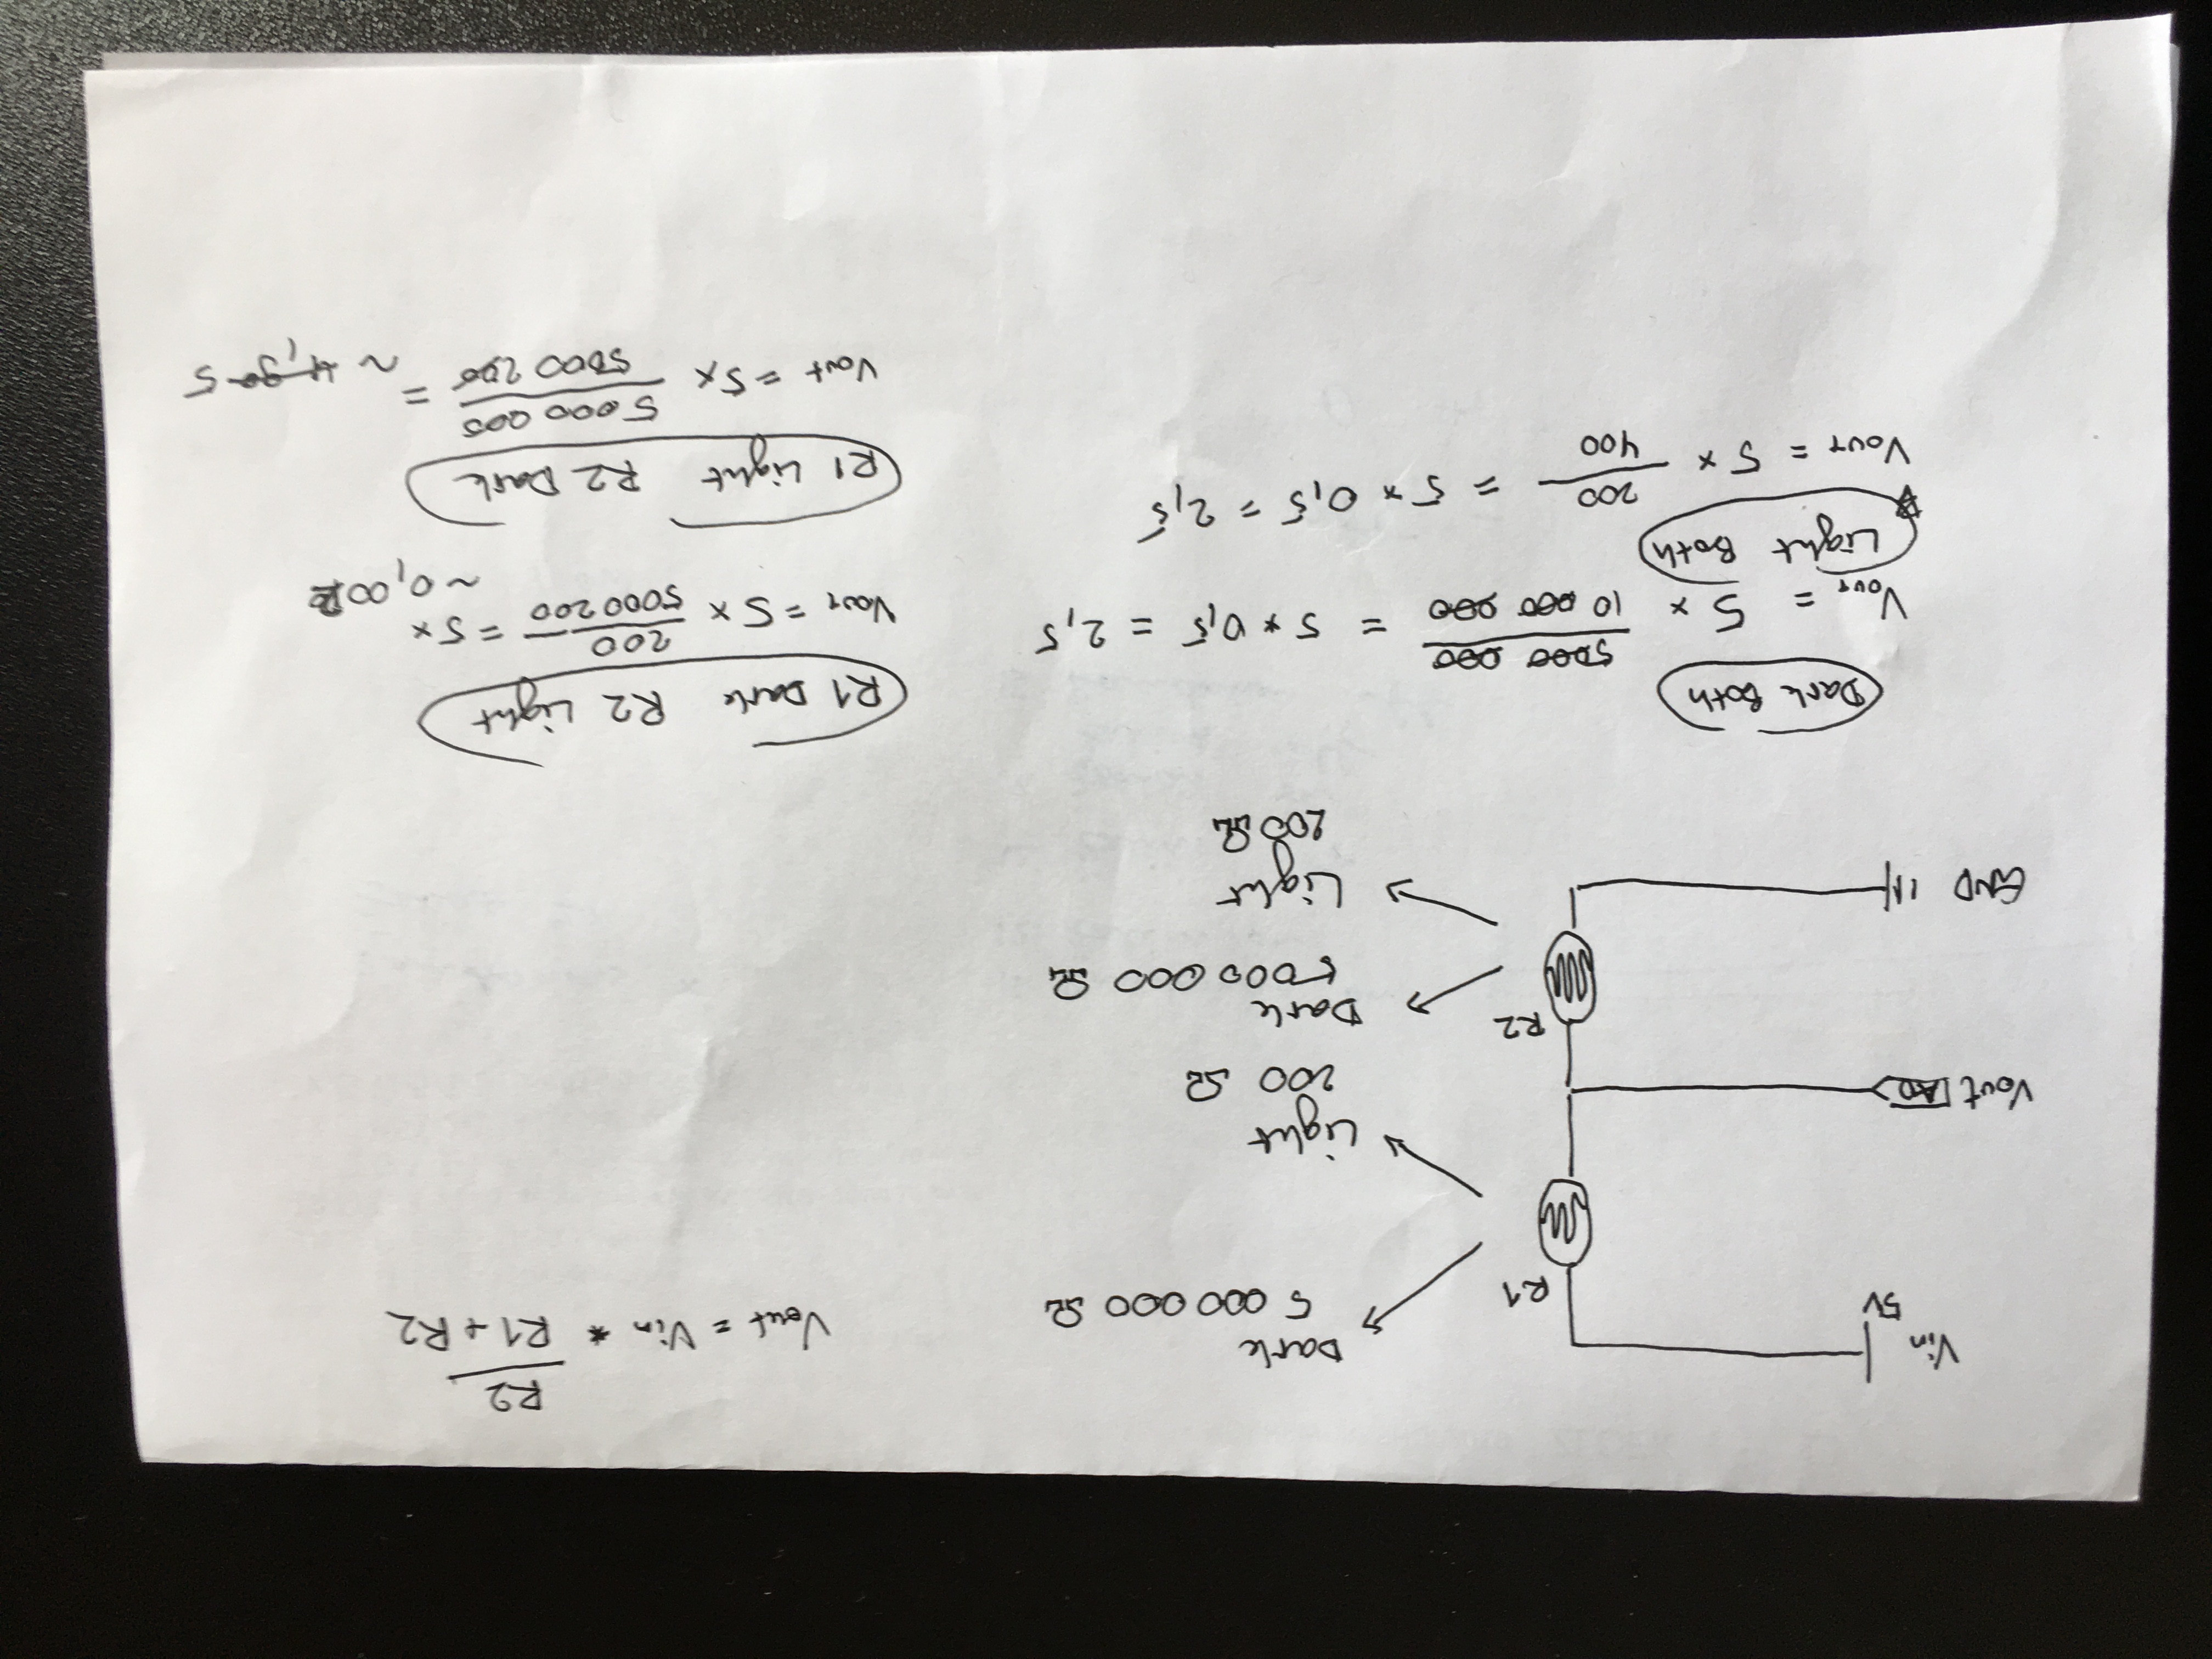 Vin
5V
R1
Dark
5 000 000 Ω
Light
200 Ω
Vout = Vin * R2
R1 + R2
Vout A0
R2
Dark
5000 000 Ω
Light
200 Ω
GND
Dark Both
Vout = 5 × 5000 000 / 10 000 000 = 5 * 0,5 = 2,5
Light Both
Vout = 5 × 200 / 400 = 5 * 0,5 = 2,5
R1 Dark R2 Light
Vout = 5 × 200 / 5000 200 = 5 ×
~ 0,00
R1 Light R2 Dark
Vout = 5 × 5 000 000 / 5000 200 =
~ 5